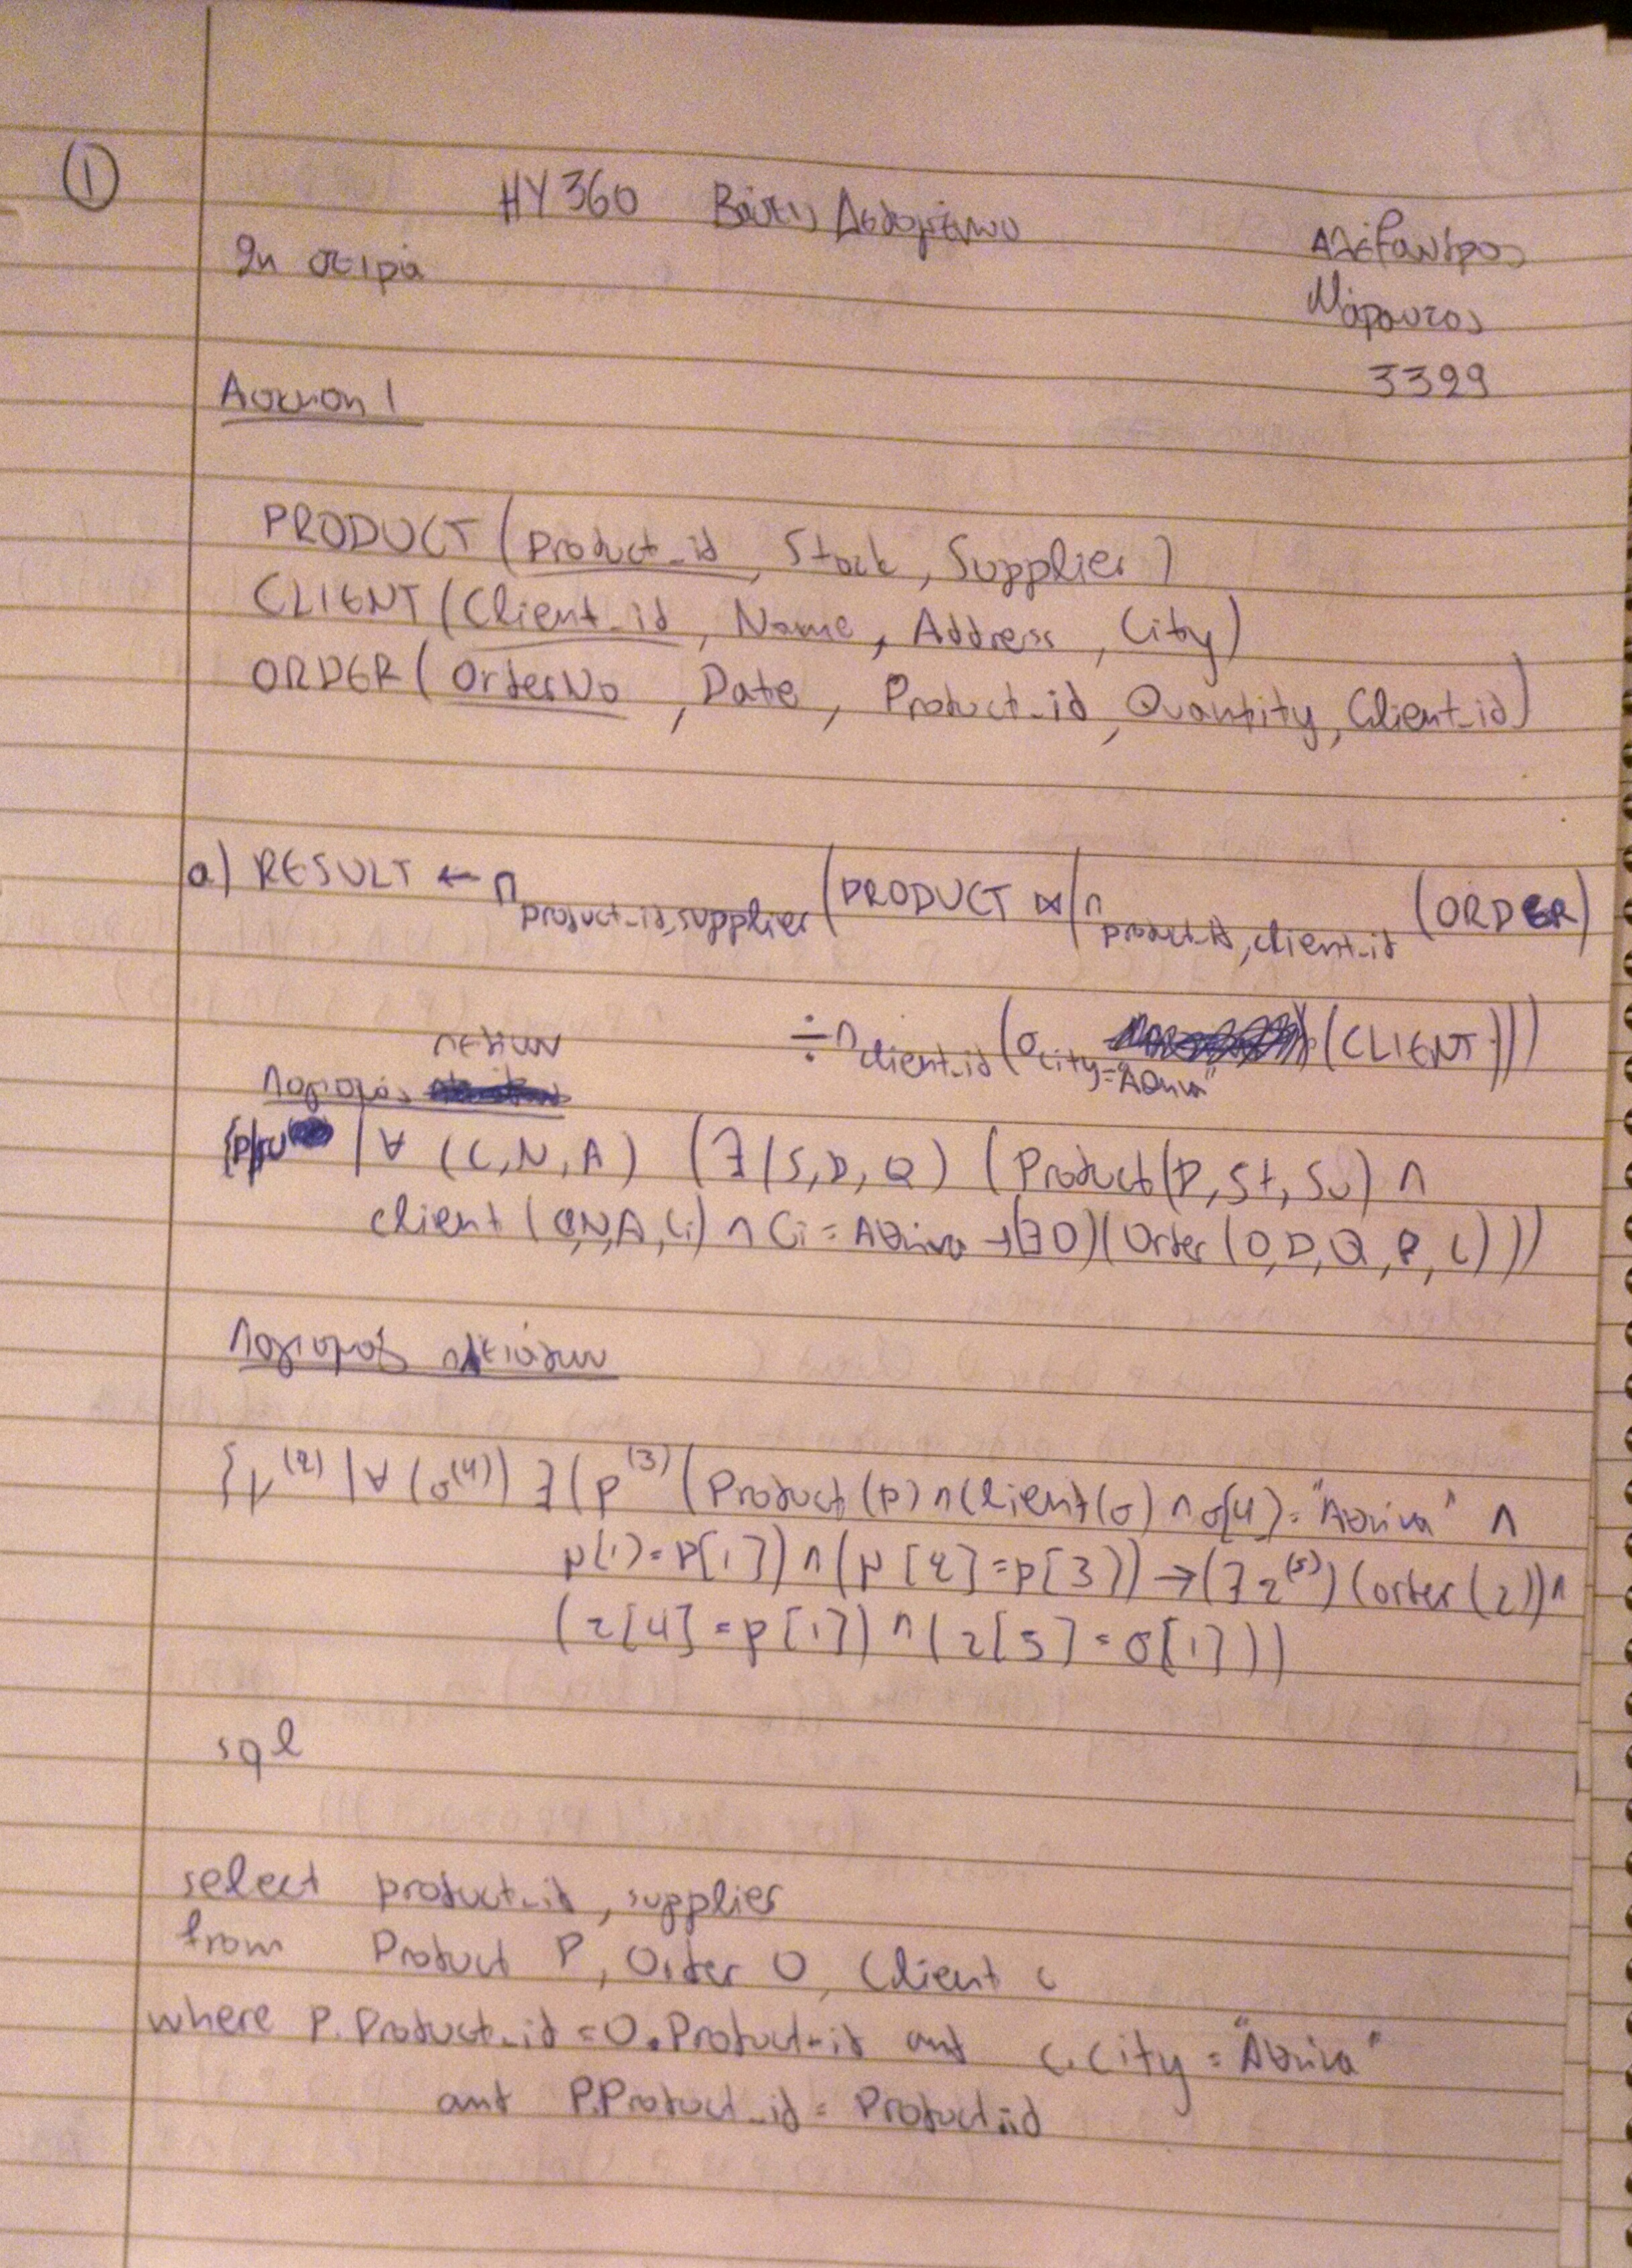 ①
ΗΥ360 Βάσεις Δεδομένων
2η σειρά
Αλέξανδρος
Μάρουτος
3399
Άσκηση 1
PRODUCT (Product_id, Stock, Supplier)
CLIENT (Client_id, Name, Address, City)
ORDER (OrderNo, Date, Product_id, Quantity, Client_id)
α) RESULT ← π product_id, supplier (PRODUCT ⋈ (π product_id, client_id (ORDER)
÷ π client_id (σ city="Αθήνα" (CLIENT)))
πεδίων
Λογισμός
| ∀ (C, N, A) (∃(S, D, Q) (Product(P, St, Su) ∩
client (C,N,A,Ci) ∩ Ci = Αθήνα →(∃O)(Order (O, D, Q, P, C)))
Λογισμός πλειάδων
{μ⁽²⁾ | ∀ (σ⁽⁴⁾) ∃ (p⁽³⁾ (Product (p) ∩ Client(σ) ∩ σ[4] = "Αθήνα" ∩
μ[1] = p[1]) ∩ (μ[2] = p[3]) → (∃ z⁽⁵⁾) (order (z)) ∩
(z[4] = p[1]) ∩ (z[5] = σ[1]))
sql
select product_id, supplier
from Product P, Order O, Client c
where P.Product_id = O.Product_id and c.City = "Αθήνα"
and P.Product_id = Product_id